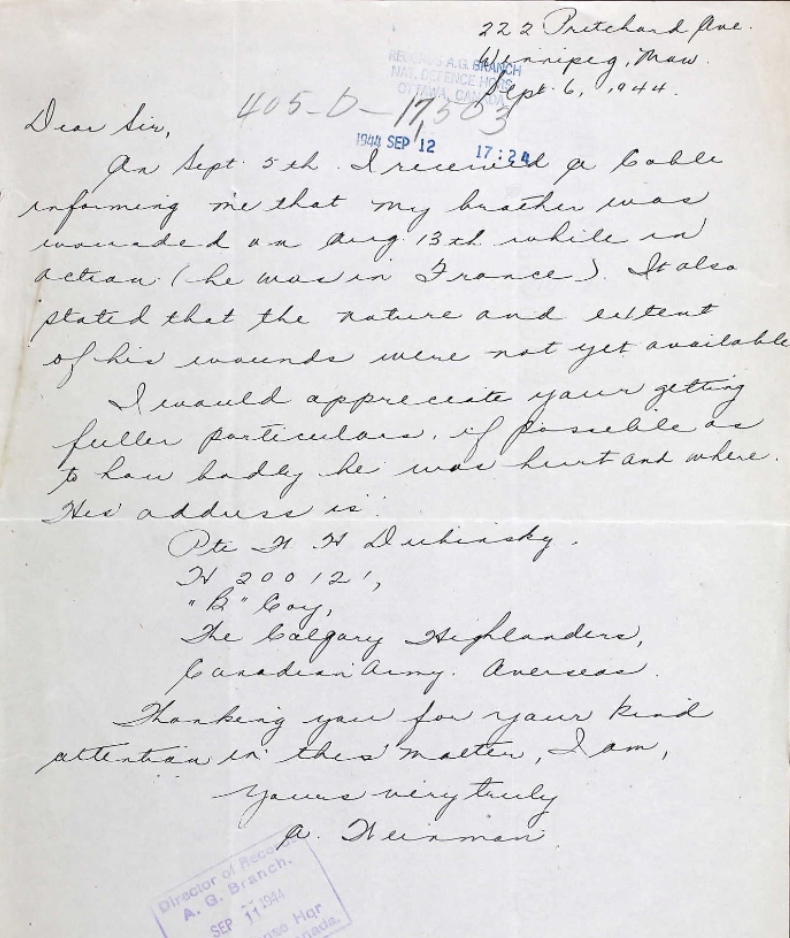 222 Pritchard Ave.
Winnipeg, Man.
Sept. 6, 1944.
RECORDS A.G. BRANCH
NAT. DEFENCE HQRS
OTTAWA, CANADA
405-D-17,303
1944 SEP 12 17:24
Dear Sir,
On Sept. 5th. I received a Cable
informing me that my brother was
wounded on Aug. 13th while in
action (he was in France). It also
stated that the nature and extent
of his wounds were not yet available
I would appreciate your getting
fuller particulars, if possible as
to how badly he was hurt and where.
His address is:
Pte H. H Dubinsky.
H 200121,
"B" Coy,
The Calgary Highlanders,
Canadian Army. Overseas.
Thanking you for your kind
attention in this matter, I am,
Yours very truly
A. Weinman.
Director of Records
A. G. Branch.
SEP 11 1944
Hqr